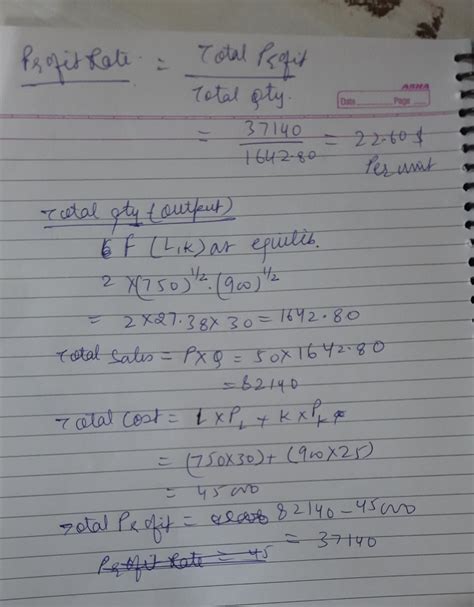 Profit Rate = Total Profit / Total qty.
ASHA
Date Page
= 37140 / 1642.80 = 22.60 $
Per unit
Total qty (output)
F (L,K) at equilib.
2 × (750)^1/2 . (900)^1/2
= 2 × 27.38 × 30 = 1642.80
Total Sales = P × Q = 50 × 1642.80
= 82140
Total Cost = L × P_L + K × P_K
= (750×30) + (900×25)
= 45000
Total Profit = 82140 - 45000
= 37140
Profit Rate = 45